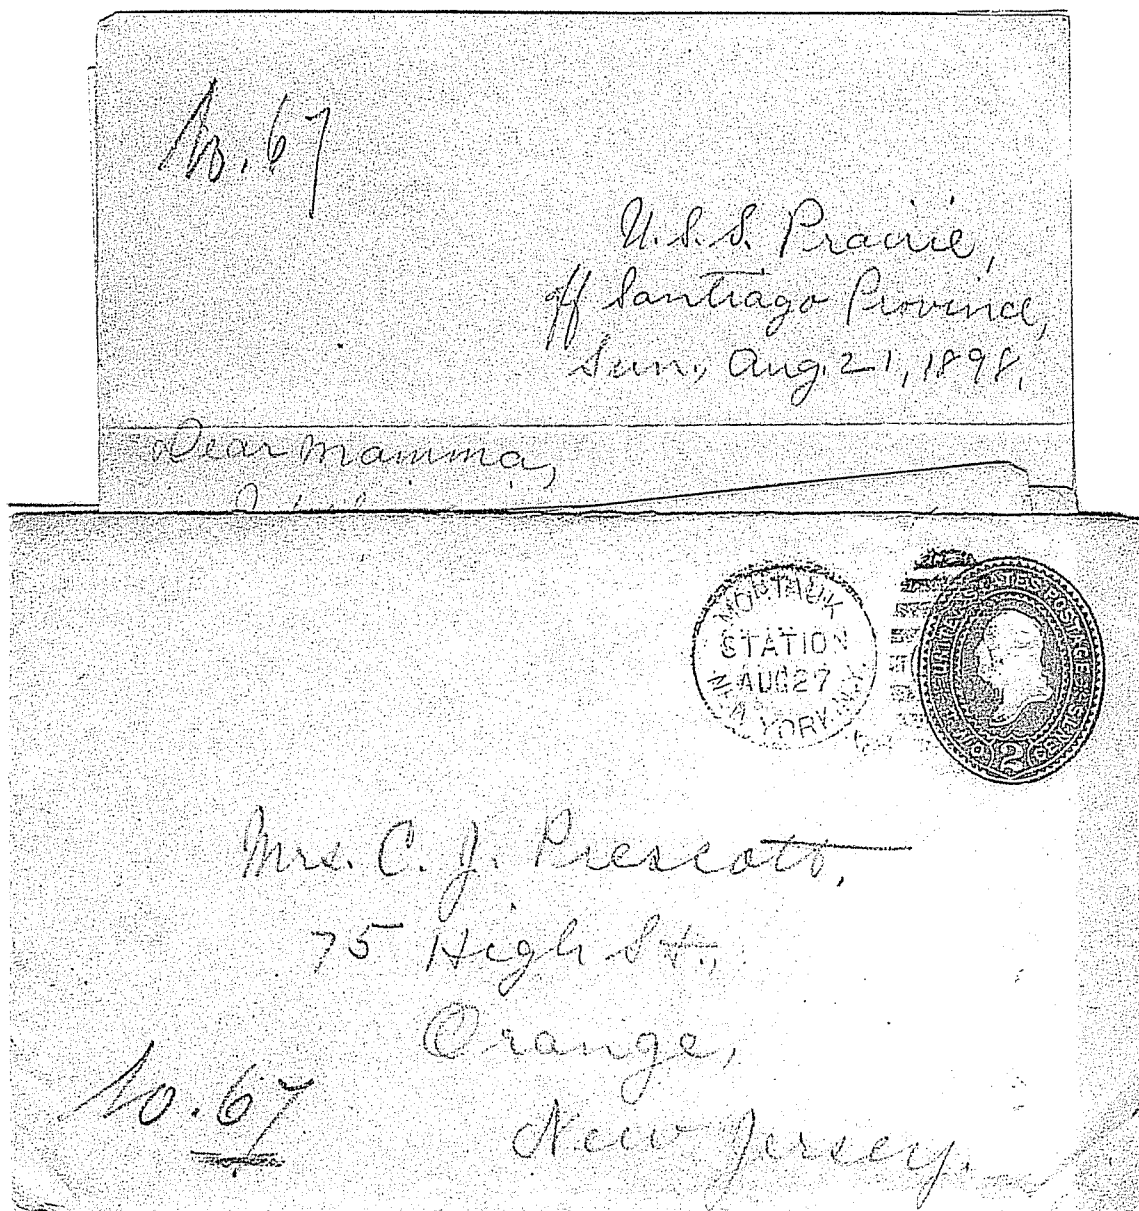 No. 67
U.S.S. Prairie,
off Santiago Province,
Sun., Aug. 21, 1898.
Dear Mamma,
MONTAUK
STATION
AUG 27
NEW YORK. N.Y.
UNITED STATES POSTAGE
2
Mrs. C. J. Prescott,
75 High St.,
Orange,
New Jersey.
No. 67